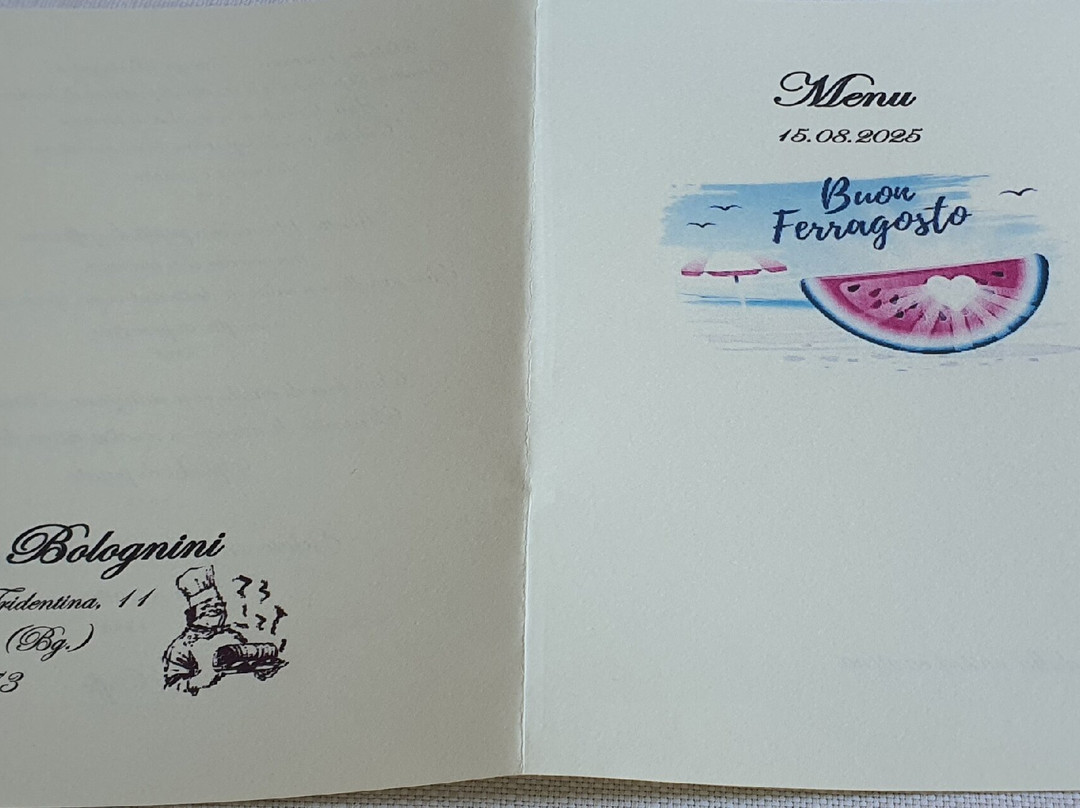 Bolognini
Tridentina, 11
(Bg.)
73
Menu
15.08.2025
Buon
Ferragosto